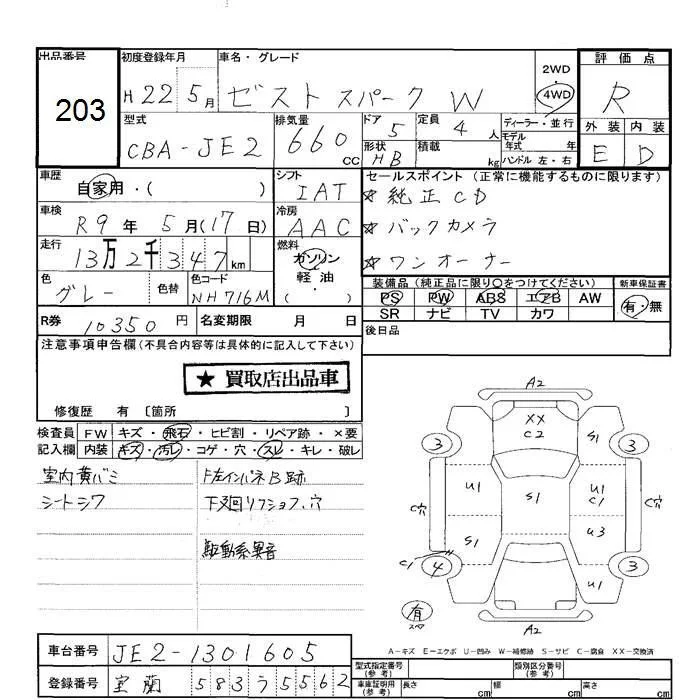 出品番号 初度登録年月 車名・グレード 2WD 評価点
203 H 22 5月 ゼスト スパーク W 4WD R
型式 排気量 ドア 定員 ディーラー・並行 外装 内装
CBA-JE2 660 CC 5 4 人 モデル年式 年 E D
形状 HB 積載 kg ハンドル 左・右
車歴 自家用・( ) シフト IAT セールスポイント (正常に機能するものに限ります)
車検 R9 年 5 月(17日) 冷房 AAC ☆ 純正CD
☆ バックカメラ
走行 13万2千347 km 燃料 ガソリン 軽油 ・ ☆ ワンオーナー
色 グレー 色替 色コード NH716M 装備品 (純正品に限り○をつけてください) 新車保証書
PS PW ABS エアB AW 有・無
R券 10350 円 名変期限 月 日 SR ナビ TV カワ
注意事項申告欄 (不具合内容等は具体的に記入して下さい) 後日品
★ 買取店出品車
修復歴 有 〔箇所 〕
検査員 FW キズ・飛石・ヒビ割・リペア跡・×要
記入欄 内装 キズ・汚レ・コゲ・穴・スレ・キレ・破レ
室内黄バミ F左インパネB跡
シートシワ 下廻リフショフ、穴
駆動系異音
A2
XX
C2
3 S1 3
C穴 U1 S1 U1 C1 C穴
S1 U3
C1 4 3
U1
有 スペア A2
A-キズ E-エクボ U-凹み W-補修跡 S-サビ C-腐食 XX-交換済
車台番号 JE2-1301605
型式指定番号 (参考) 類別区分番号 (参考)
登録番号 室蘭 583 う 5562
車庫証明用 (参考) 長さ cm 幅 cm 高さ cm